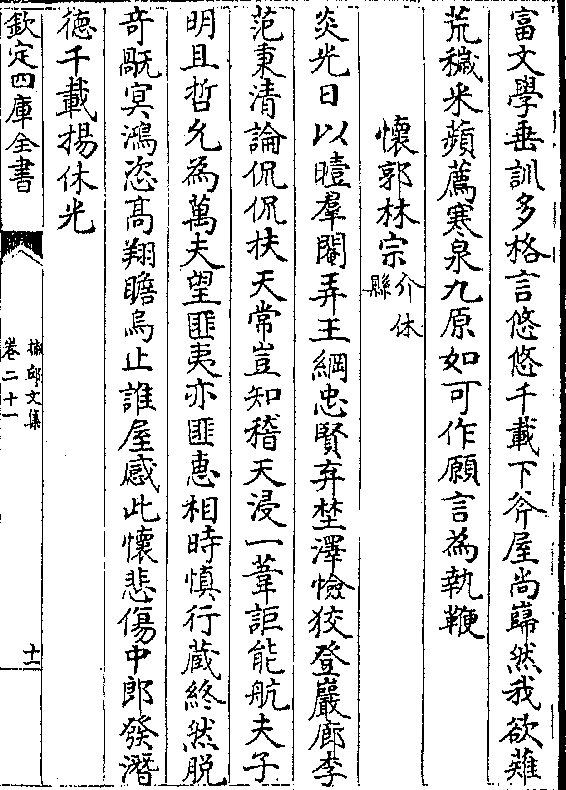 富文學垂訓多格言悠悠千載下斧屋尚巋然我欲薙
荒穢米蘋薦寒泉九原如可作願言為執鞭
懷郭林宗介休縣
炎光日以曀羣閹弄王綱忠賢弃埜澤憸狡登巖廊李
范秉清論侃侃扶天常豈知稽天浸一葦詎能航夫子
明且哲允為萬夫望匪夷亦匪惠相時慎行蔵終然脱
奇厩冥鴻恣髙翔瞻烏止誰屋感此懷悲傷中郎發潛
德千載揚休光
欽定四庫全書
卷二十一
十一